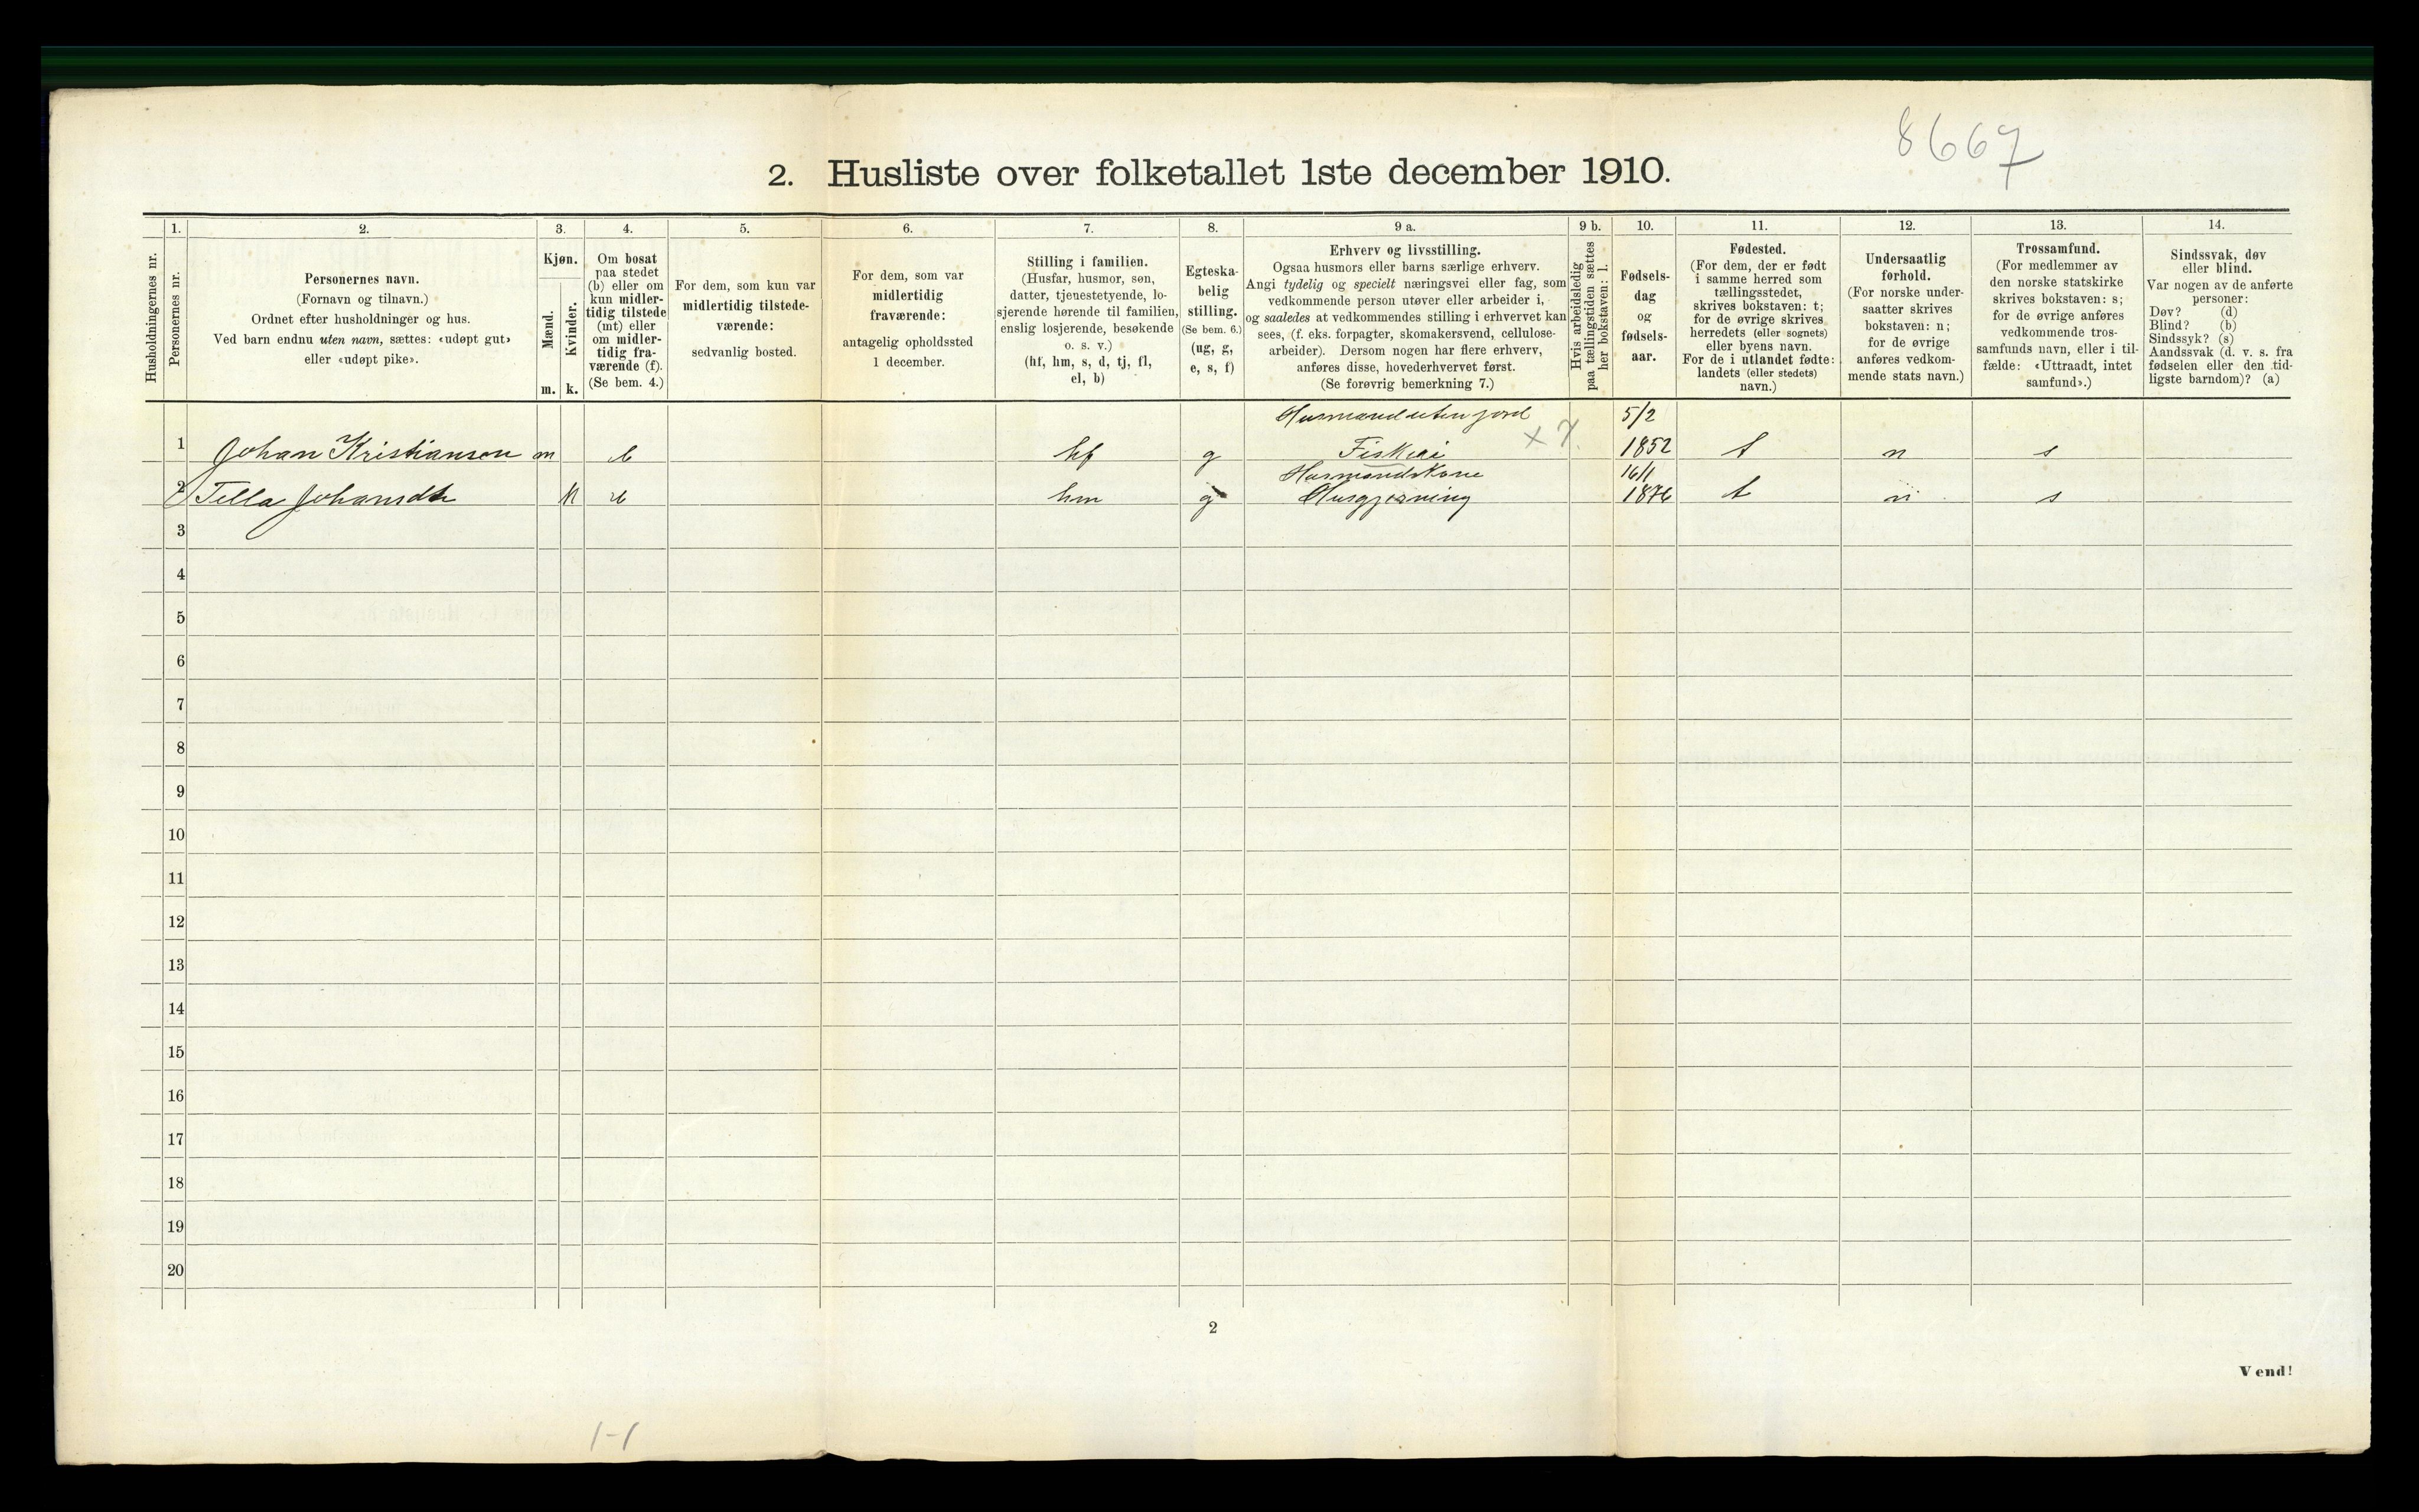 8667
2. Husliste over folketallet 1ste december 1910.
Husholdningernes nr.
1.
Personernes nr.
2.
Personernes navn.
(Fornavn og tilnavn.)
Ordnet efter husholdninger og hus.
Ved barn endnu uten navn, sættes: «udøpt gut»
eller «udøpt pike».
3.
Kjøn.
Mænd.
m.
Kvinder.
k.
4.
Om bosat
paa stedet
(b) eller om
kun midler-
tidig tilstede
(mt) eller
om midler-
tidig fra-
værende (f).
(Se bem. 4.)
5.
For dem, som kun var
midlertidig tilstede-
værende:
sedvanlig bosted.
6.
For dem, som var
midlertidig
fraværende:
antagelig opholdssted
1 december.
7.
Stilling i familien.
(Husfar, husmor, søn,
datter, tjenestetyende, lo-
sjerende hørende til familien,
enslig losjerende, besøkende
o. s. v.)
(hf, hm, s, d, tj, fl,
el, b)
8.
Egteska-
belig
stilling.
(Se bem. 6.)
(ug, g,
e, s, f)
9 a.
Erhverv og livsstilling.
Ogsaa husmors eller barns særlige erhverv.
Angi tydelig og specielt næringsvei eller fag, som
vedkommende person utøver eller arbeider i,
og saaledes at vedkommendes stilling i erhvervet kan
sees, (f. eks. forpagter, skomakersvend, cellulose-
arbeider). Dersom nogen har flere erhverv,
anføres disse, hovederhvervet først.
(Se forøvrig bemerkning 7.)
9 b.
Hvis arbeidsledig
paa tællingstiden sættes
her bokstaven: l.
10.
Fødsels-
dag
og
fødsels-
aar.
11.
Fødested.
(For dem, der er født
i samme herred som
tællingsstedet,
skrives bokstaven: t;
for de øvrige skrives
herredets (eller sognets)
eller byens navn.
For de i utlandet fødte:
landets (eller stedets)
navn.)
12.
Undersaatlig
forhold.
(For norske under-
saatter skrives
bokstaven: n;
for de øvrige
anføres vedkom-
mende stats navn.)
13.
Trossamfund.
(For medlemmer av
den norske statskirke
skrives bokstaven: s;
for de øvrige anføres
vedkommende tros-
samfunds navn, eller i til-
fælde: «Uttraadt, intet
samfund».)
14.
Sindssvak, døv
eller blind.
Var nogen av de anførte
personer:
Døv? (d)
Blind? (b)
Sindssyk? (s)
Aandssvak (d. v. s. fra
fødselen eller den tid-
ligste barndom)? (a)
Husmand uten jord 5/2
1 Johan Kristiansen m b hf g Fiskeri x 7. 1852 t n s
Husmandskone 16/1
2 Tella Johansdtr k b hm g Husgjerning 1876 t n s
3
4
5
6
7
8
9
10
11
12
13
14
15
16
17
18
19
20
2
Vend!
1-1